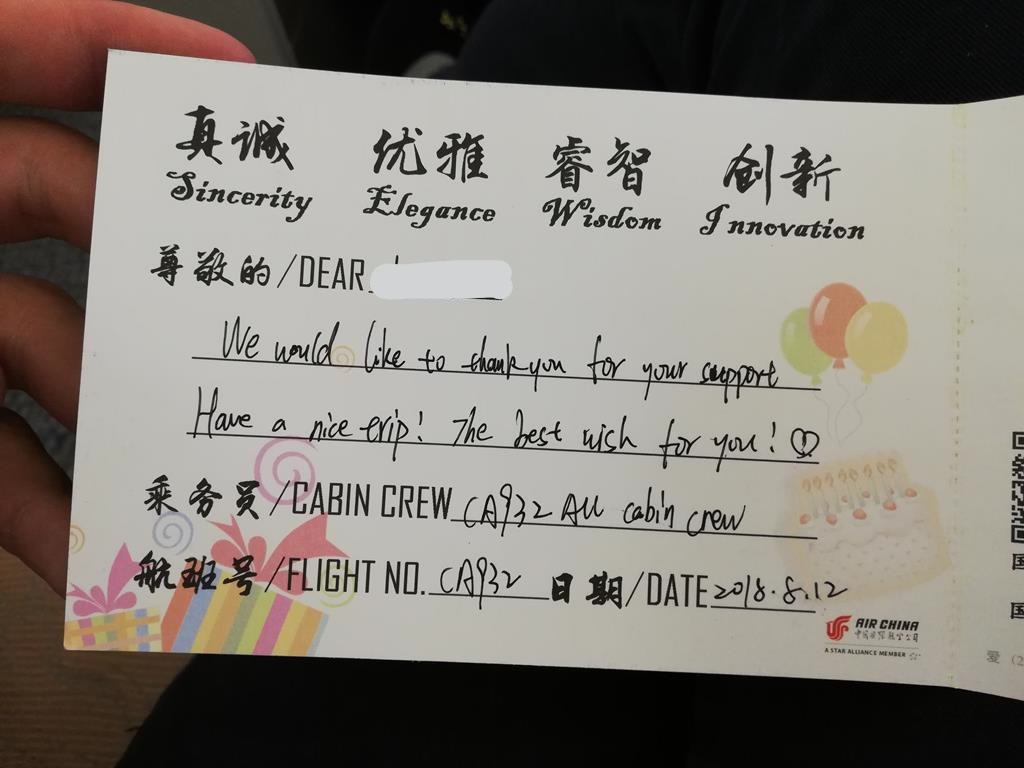 真诚 优雅 睿智 创新
Sincerity Elegance Wisdom Innovation
尊敬的/DEAR
We would like to thank you for your support
Have a nice trip! The best wish for you!
乘务员/CABIN CREW CA932 All cabin crew
航班号/FLIGHT NO. CA932 日期/DATE 2018.8.12
AIR CHINA
中国国际航空公司
A STAR ALLIANCE MEMBER
国
国
爱 (2